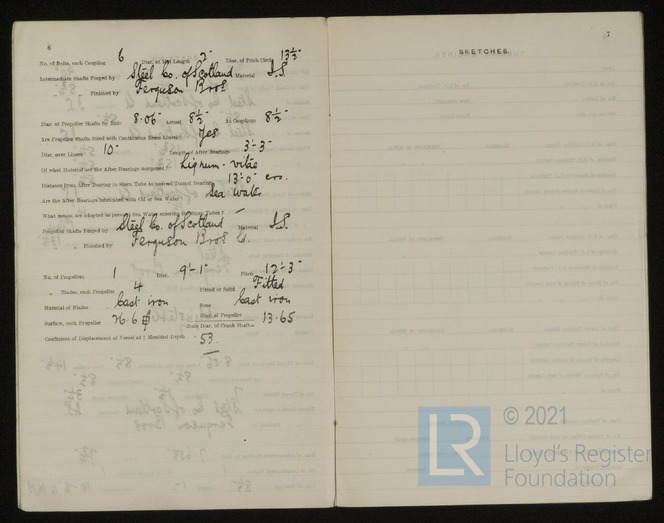 6
No. of Bolts, each Coupling 6 Diar. at Mid Length 2" Diar. of Pitch Circle 13½"
Intermediate Shafts Forged by Steel Co. of Scotland Material I.S.
Finished by Ferguson Bros
Diar. of Propeller Shafts by Rule 8.06" Actual 8½" At Couplings 8½"
Are Propeller Shafts fitted with Continuous Brass Liners? Yes
Diar. over Liners 10" Length of After Bearings 3'-3"
Of what Material are the After Bearings composed? Lignum-vitae
Distance from After Bearing in Stern Tube to nearest Tunnel Bearing 13'-0" crs.
Are the After Bearings lubricated with Oil or Sea Water? Sea Water
What means are adopted to prevent Sea Water entering the Stern Tubes? —
Propeller Shafts Forged by Steel Co. of Scotland Material I.S.
Finished by Ferguson Bros
No. of Propellers 1 Diar. 9'-1" Pitch 12'-3"
„ Blades, each Propeller 4 Fitted or Solid Fitted
Material of Blades Cast iron Boss Cast iron
Surface, each Propeller 26.6 Diar. of Propeller / Diar. of Crank Shaft = 13.65
Coefficient of Displacement of Vessel at Moulded Depth .53
7
SKETCHES.
LR
© 2021
Lloyd's Register
Foundation